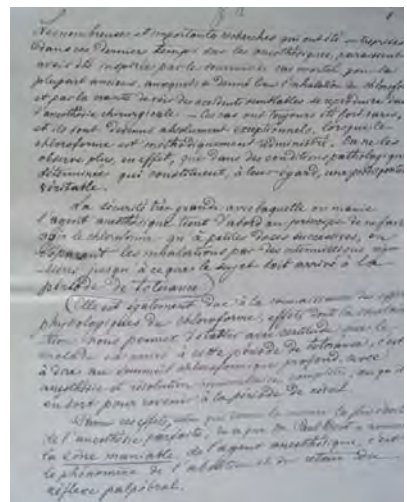 Les nombreuses et importantes recherches qui ont été entreprises
dans ces derniers temps sur les anesthésiques, paraissent
avoir été inspirées par le souvenir de cas mortels pour la
plupart anciens, auxquels a donné lieu l'inhalation du chloroforme
et par la crainte de voir des accidents semblables se reproduire dans
l'anesthésie chirurgicale. — Ces cas ont toujours été fort rares,
et ils sont devenus absolument exceptionnels, lorsque le
chloroforme est méthodiquement administré. On ne les
observe plus, en effet, que dans des conditions pathologiques
déterminées qui constituent, à leur égard, une prédisposition
véritable.
La sécurité très grande avec laquelle on manie
l'agent anesthésique tient d'abord au principe de ne faire
le chloroforme qu'à petites doses successives, en
séparant les inhalations par des intermissions
jusqu'à ce que le sujet soit arrivé à la
période de tolérance.
Elle est également due à la connaissance des effets
physiologiques du chloroforme, effets dont la
nous permet d'établir avec certitude que le
malade est arrivé à cette période de tolérance, c'est
à dire au sommeil chloroformique profond, avec
anesthésie et résolution musculaires complètes, ou qu'il
en sort pour revenir à la période de réveil.
de l'anesthésie parfaite, Paul Bert a nommé
la zone maniable de l'agent anesthésique, c'est
le phénomène de l'abolition et du retour du
réflexe palpébral.